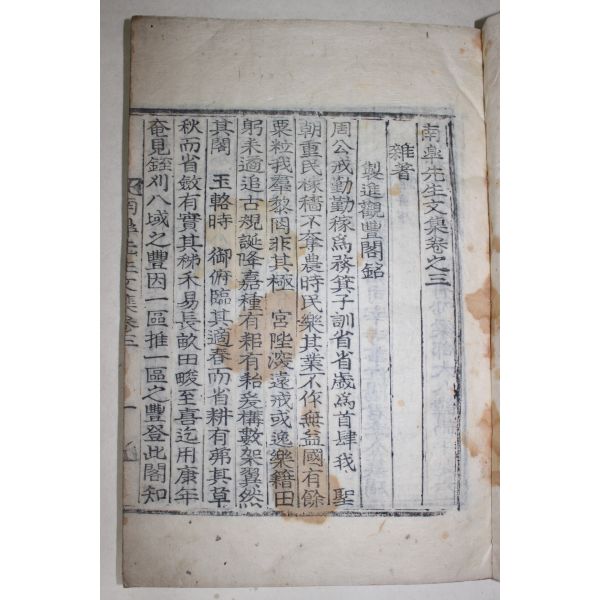 南皐先生文集卷之三
雜著
製進觀豐閣銘
周公戒勤勤稼爲務箕子訓省省歲爲首肆我 聖
朝重民稼穡不奪農時民樂其業不作無益國有餘
粟粒我羣黎罔非其極 宮陛深遠戒或逸樂籍田
躬耒適追古規誕降嘉種有耜有耛爰構數架翼然
其閣 玉輅時 御俯臨其適春而省耕有茀其草
秋而省斂有實其稊禾易長畝田畯至喜迄用康年
奄見銍刈八域之豐因一區推一區之豐登此閣知
南皐先生文集卷三 一